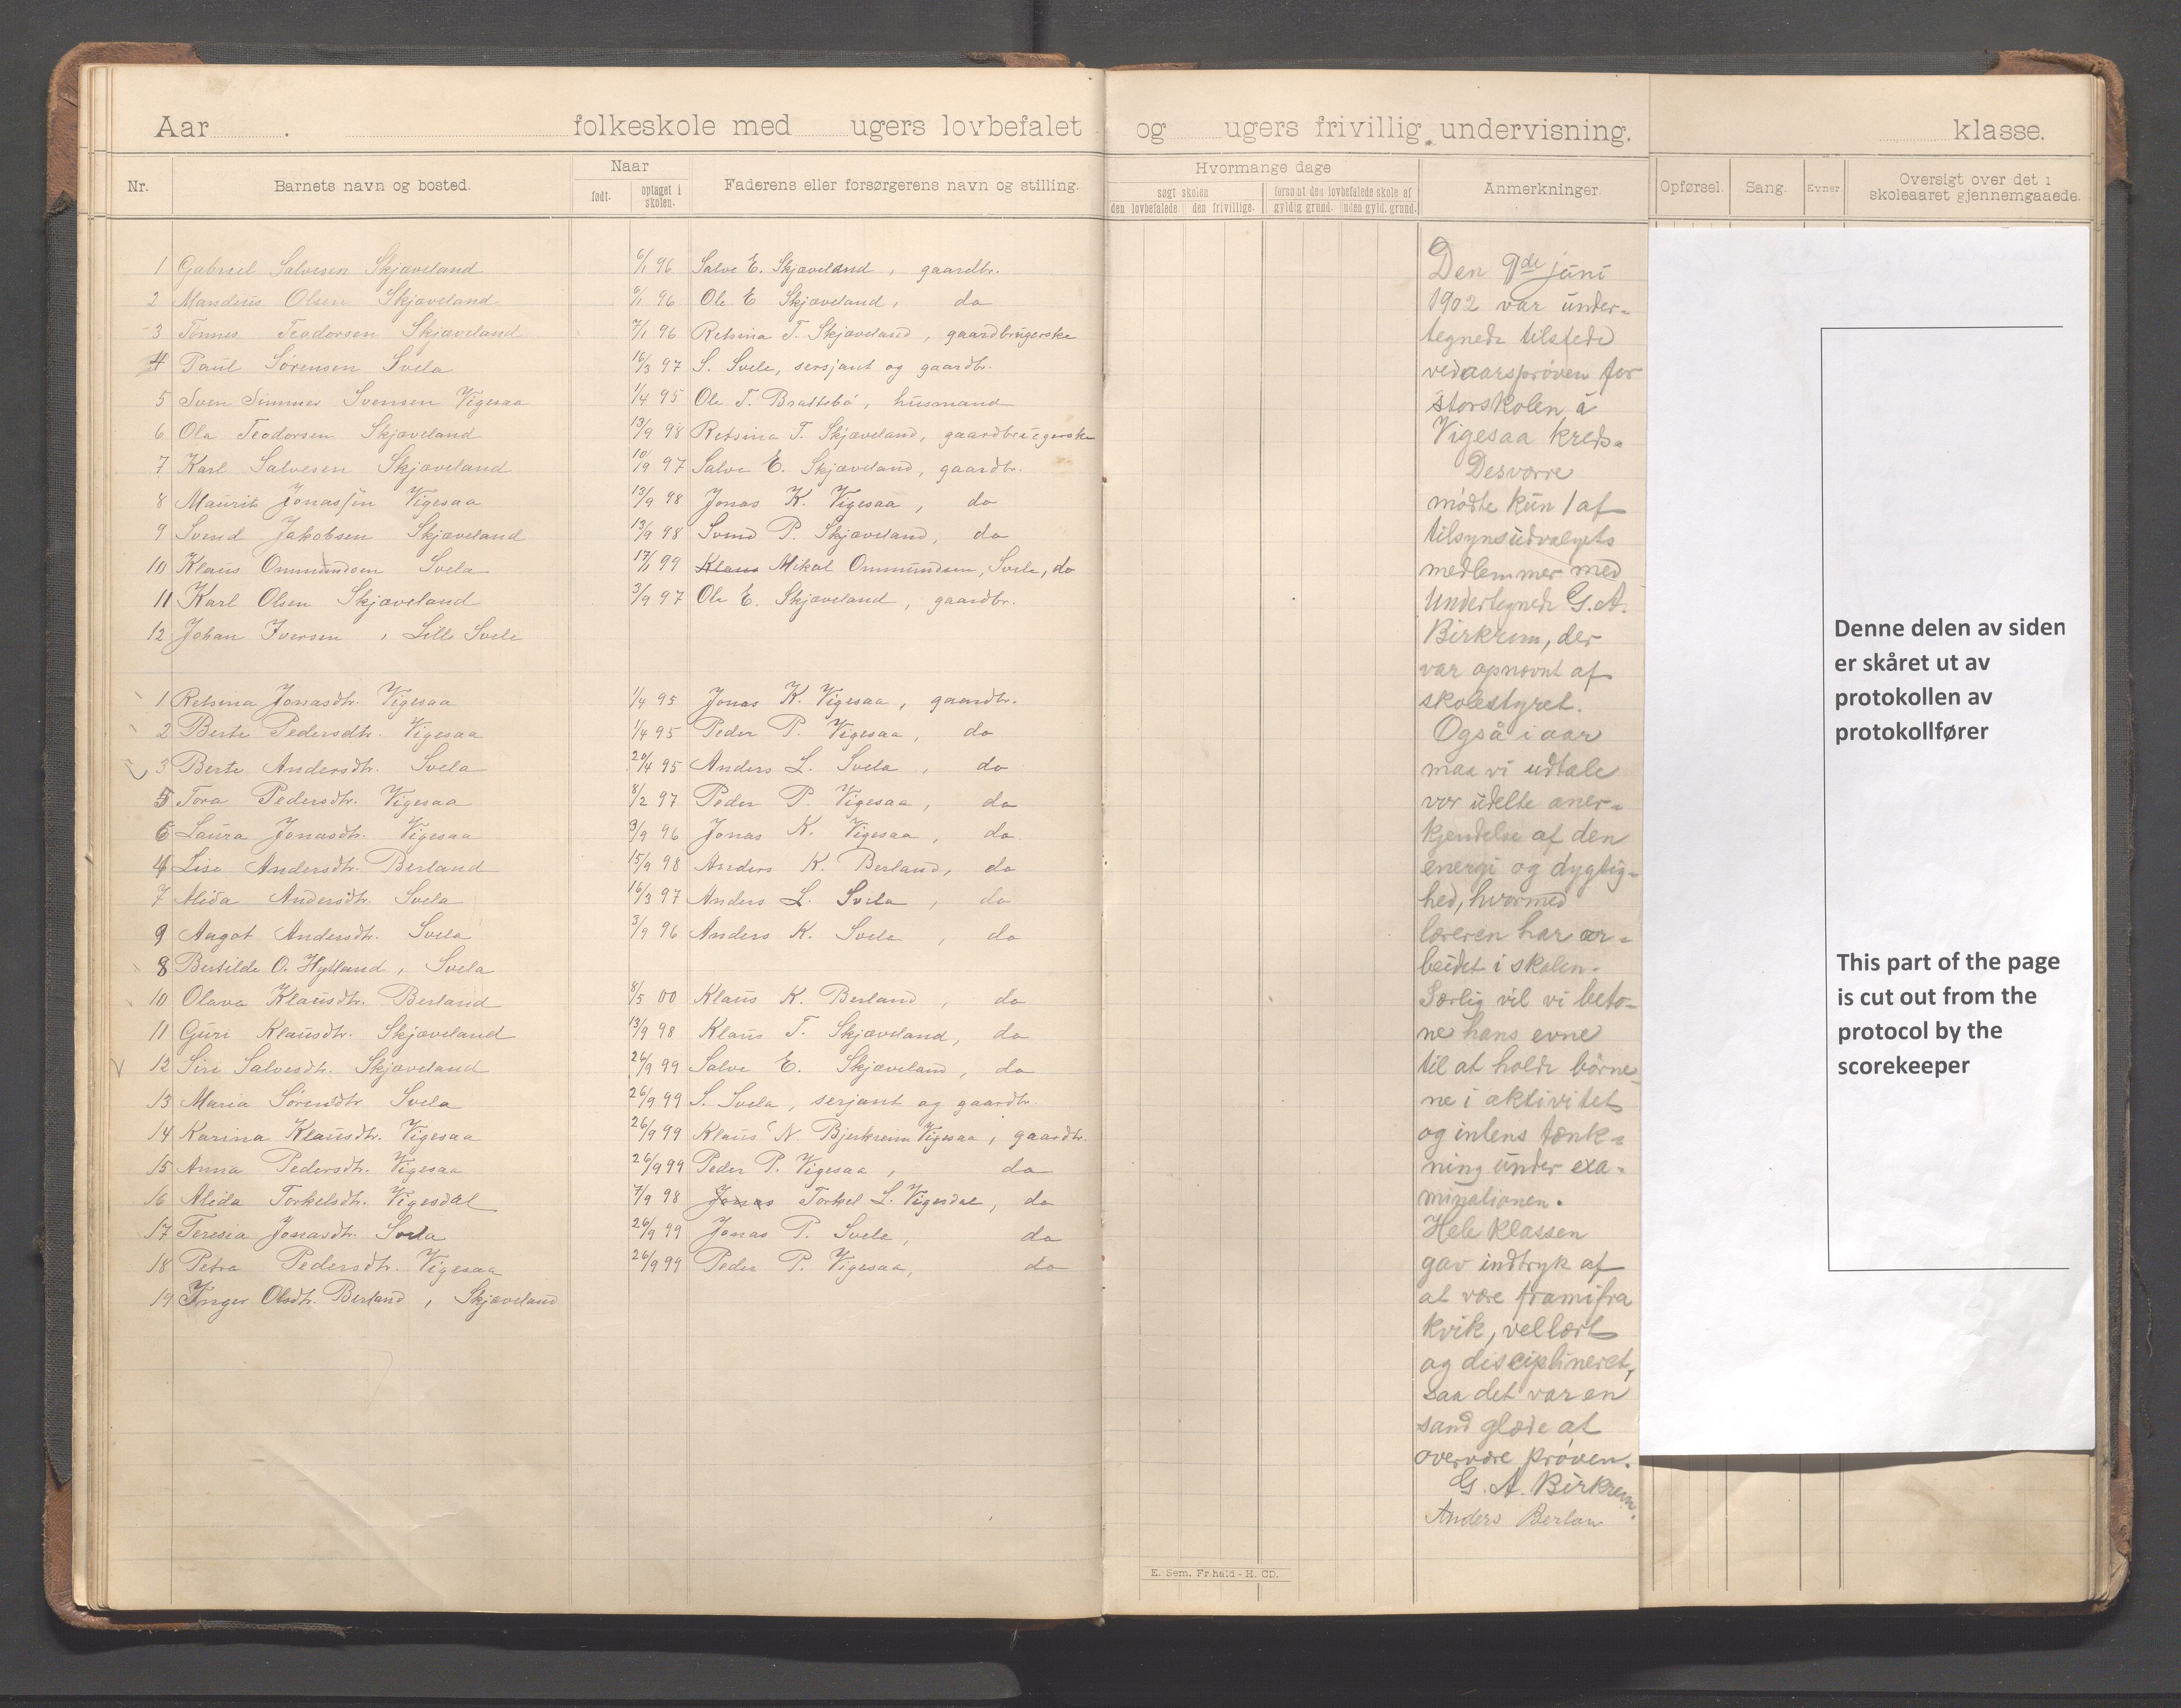 Aar . folkeskole med ugers lovbefalet og ugers frivillig undervisning. klasse.
Nr. Barnets navn og bosted. Naar født. optaget i skolen. Faderens eller forsørgerens navn og stilling.
Hvormange dage
søgt skolen forsømt den lovbefalede skole af
den lovbefalede den frivillige. gyldig grund. uden gyld. grund.
Anmerkninger. Opførsel. Sang. Evner Oversigt over det i skoleaaret gjennemgaaede.
1 Gabriel Salvesen Skjæveland 6/1 96 Salve E. Skjæveland, gaardbr.
2 Mandius Olsen Skjæveland 6/1 96 Ole E Skjæveland, do
3 Tönnes Teodorsen Skjæveland 7/1 96 Retsina T. Skjæveland, gaardbrugerske
4 Paul Sörensen Svela 16/3 97 S. Svela, sersjant og gaardbr.
5 Sven Svensen Vigesaa 1/4 95 Ole T. Brattebö, husmand
6 Ola Teodorsen Skjæveland 13/9 98 Retsina T. Skjæveland, gaardbrugerske
7 Karl Salvesen Skjæveland 10/9 97 Salve E. Skjæveland, gaardbr.
8 Maurits Jonassen Vigesaa 13/9 98 Jonas K. Vigesaa, do
9 Svend Jakobsen Skjæveland 13/9 98 Svend P. Skjæveland, do
10 Klaus Ommundsen Svela 17/1 99 Klaus Mikal Ommundsen, Svela, do
11 Karl Olsen Skjæveland 3/9 97 Ole E. Skjæveland, gaardbr.
12 Johan Iversen, Lille Svela
1 Retsina Jonasdtr. Vigesaa 1/4 95 Jonas K. Vigesaa, gaardbr.
2 Berte Pedersdtr. Vigesaa 1/4 95 Peder P. Vigesaa, do
3 Berte Andersdtr. Svela 20/4 95 Anders L. Svela, do
5 Tora Pedersdtr. Vigesaa 8/2 97 Peder P. Vigesaa, do
6 Laura Jonasdtr. Vigesaa 3/9 96 Jonas K. Vigesaa, do
4 Lise Andersdtr. Berland 15/9 98 Anders K. Berland, do
7 Alida Andersdtr. Svela 16/3 97 Anders L. Svela, do
9 Aagot Andersdtr. Svela 3/9 96 Anders K. Svela, do
8 Bertilde O. Hytland, Svela
10 Olava Klausdtr. Berland 8/5 00 Klaus K. Berland, do
11 Guri Klausdtr. Skjæveland 13/9 98 Klaus T. Skjæveland, do
12 Siri Salvesdtr. Skjæveland 26/9 99 Salve E. Skjæveland, do
13 Maria Sörensdtr Svela 26/9 99 S. Svela, serjant og gaardbr.
14 Karina Klausdtr. Vigesaa 26/9 99 Klaus N. Bjerkreim Vigesaa, gaardbr.
15 Anna Pedersdtr. Vigesaa 26/9 99 Peder P. Vigesaa, do
16 Alida Torkelsdtr. Vigesdal 7/9 98 Jonas Torkel L. Vigesdal, do
17 Teresia Jonasdtr. Svela 26/9 99 Jonas P. Svela, do
18 Petra Pedersdtr. Vigesaa 26/9 99 Peder P. Vigesaa, do
19 Inger Olsdtr. Berland, Skjæveland
Den 9de juni
1902 var under-
tegnede tilstede
ved aarsprøven for
storskolen i
Vigesaa kreds.
Desværre
mödte kun 1 af
tilsynsudvalgets
medlemmer med
undertegnede G. A.
Birkrem, der
var opnævnt af
skolestyret.
Også i aar
maa vi udtale
vor udelte aner-
kjendelse af den
energi og dygtig-
hed, hvormed
læreren har ar-
beidet i skolen.
Særlig vil vi beto-
ne hans evne
til at holde börne-
ne i aktivitet
og intens tænk-
ning under exa-
minationen.
Hele klassen
gav indtryk af
at være framifra
kvik, vellært
og disciplineret,
saa det var en
sand glæde at
overvære prøven.
G. A. Birkrem.
Anders Berlan
E. Sem, Fr.hald - H. CD.
Denne delen av siden
er skåret ut av
protokollen av
protokollfører
This part of the page
is cut out from the
protocol by the
scorekeeper